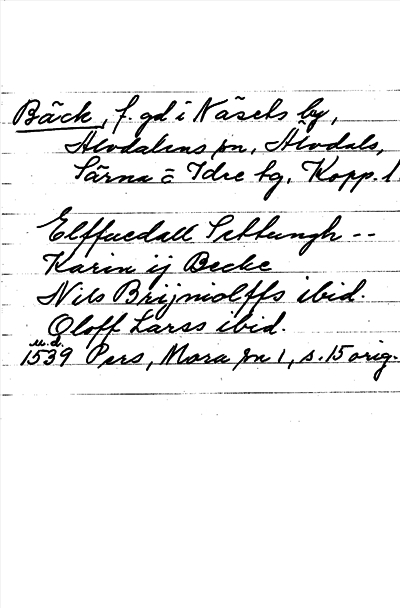 Bäck, f. gd i Näsets by,
Älvdalens sn, Älvdals,
Särna o Idre tg, Kopp. l
Elffuedall Settungh --
Karin ij Becke
Nils Brijniolffs ibid.
Oloff Larss ibid.
u.d.
1539 Pers, Mora sn 1, s. 15 orig.